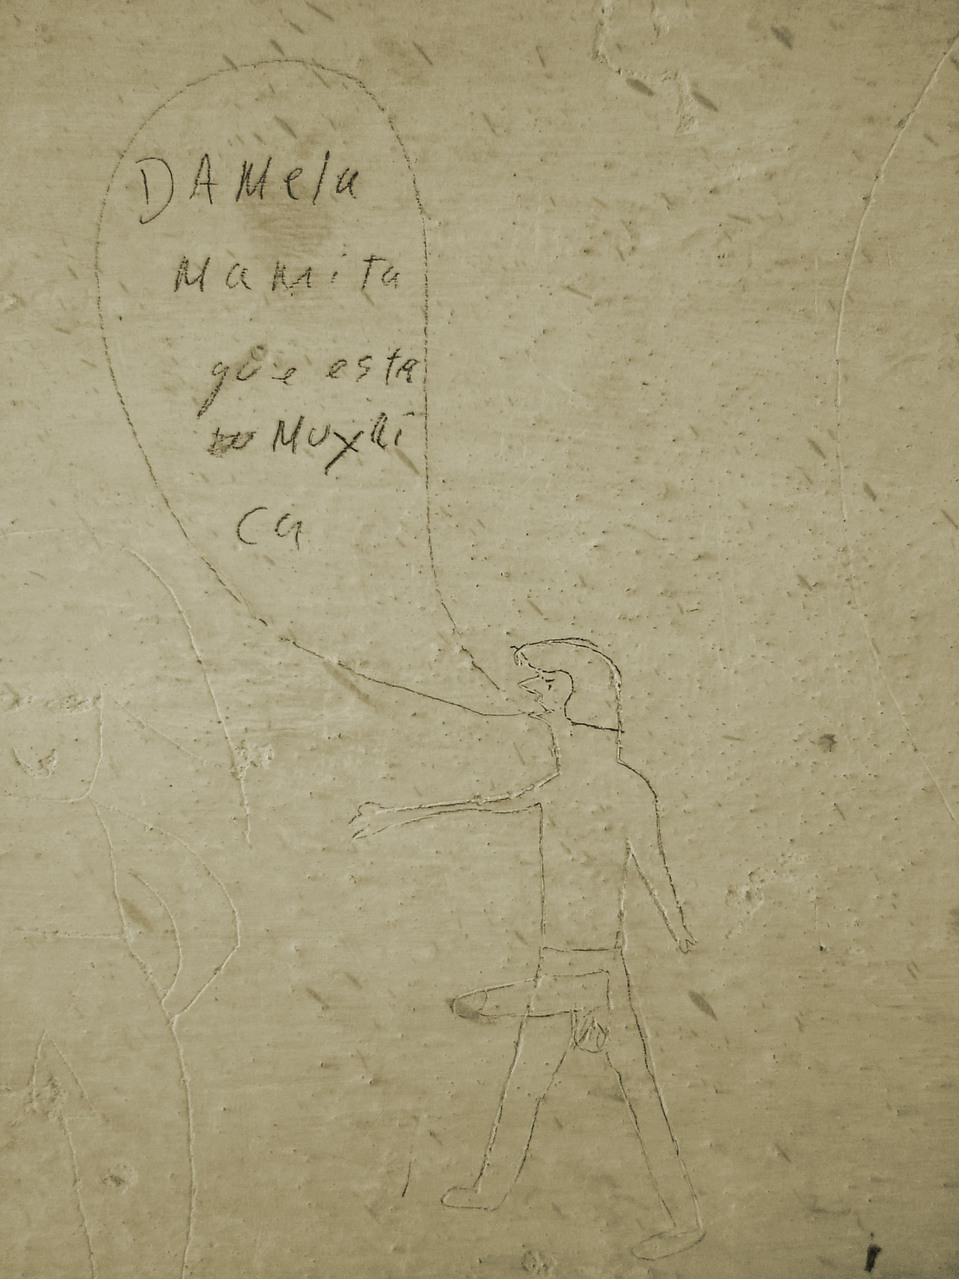 DAMela
Mamita
que esta
Mux
ca